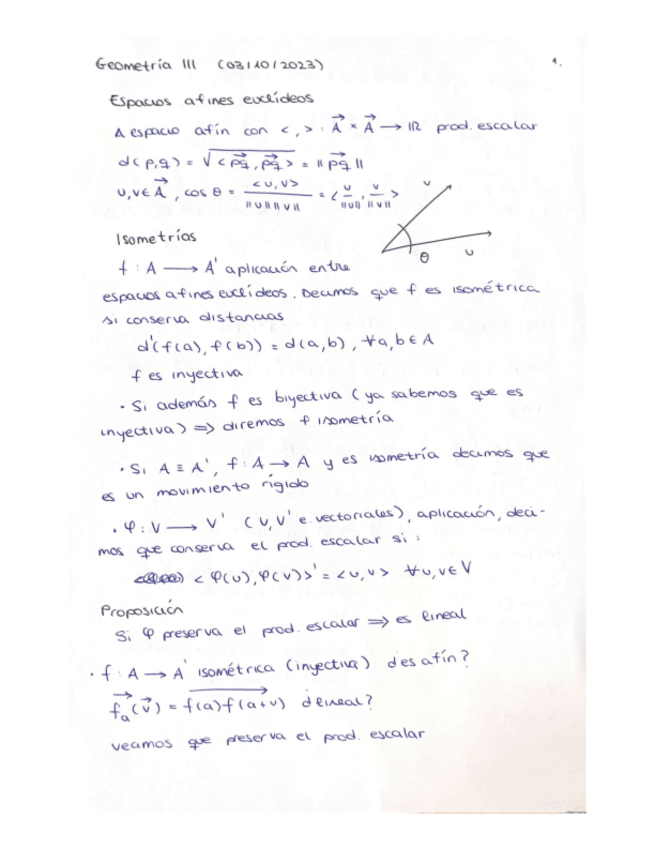 Geometría III (03/10/2023) 1.
Espacios afines euclídeos
A espacio afín con < , > : A⃗ × A⃗ → ℝ prod. escalar
d(p,q) = √<p⃗q, p⃗q> = ||p⃗q||
u,v ∈ A⃗, cos θ = <u,v> / ||u|| ||v|| = <u/||u||, v/||v||>
v
θ u
Isometrías
f : A → A' aplicación entre
espacios afines euclídeos. Decimos que f es isométrica
si conserva distancias
d'(f(a), f(b)) = d(a,b), ∀a,b ∈ A
f es inyectiva
· Si además f es biyectiva (ya sabemos que es
inyectiva) ⇒ diremos f isometría
· Si A ≡ A', f : A → A y es isometría decimos que
es un movimiento rígido
· φ : V → V' (V,V' e. vectoriales), aplicación, deci-
mos que conserva el prod. escalar si :
<φ(u), φ(v)>' = <u,v> ∀u,v ∈ V
Proposición
Si φ preserva el prod. escalar ⇒ es lineal
· f : A → A' isométrica (inyectiva) ¿es afín?
f⃗ₐ(v⃗) = f(a)f(a+v) ¿lineal?
veamos que preserva el prod. escalar